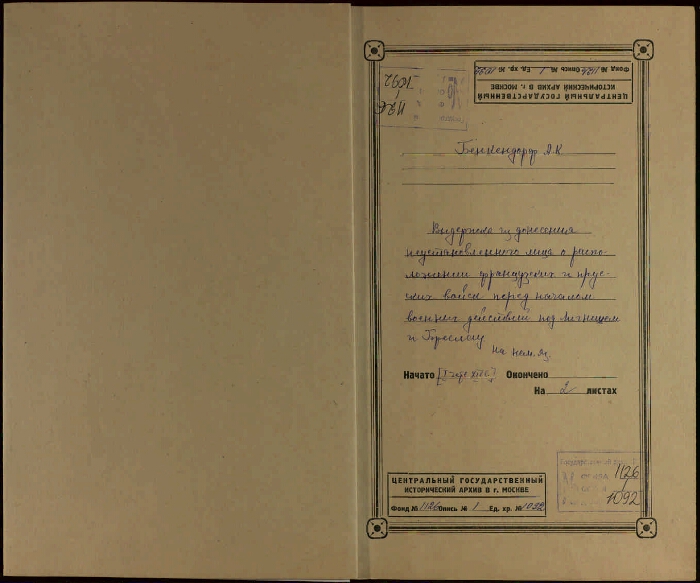 ЦЕНТРАЛЬНЫЙ ГОСУДАРСТВЕННЫЙ
ИСТОРИЧЕСКИЙ АРХИВ В г. МОСКВЕ
Фонд № 1126 Опись № 1 Ед. хр. № 1092
1126
1092
Бенкендорф А.К
Выдержка из донесения
неустановленного лица о распо-
ложении французских и прус-
ских войск перед началом
военных действий под Лигницем
и Бреслау
на нем. яз.
Начато Окончено
На 2 листах
1126
1092
ЦЕНТРАЛЬНЫЙ ГОСУДАРСТВЕННЫЙ
ИСТОРИЧЕСКИЙ АРХИВ В г. МОСКВЕ
Фонд № 1126 Опись № 1 Ед. хр. № 1092